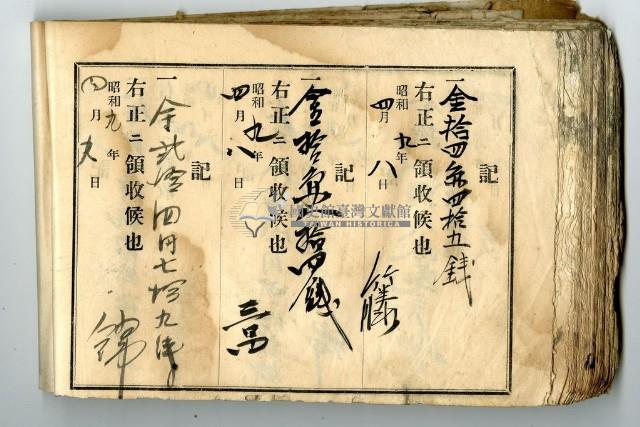 記
一金拾四円四拾五銭
右正ニ領收候也
昭和九年
四月八日
籐
記
一金拾
拾四銭
右正ニ領收候也
昭和九年
四月八日
記
一金弐拾四円七拾九銭
右正ニ領收候也
昭和九年
四月九日
錦
國史館臺灣文獻館
TAIWAN HISTORICA